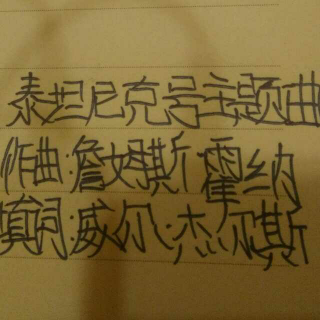 泰坦尼克号主题曲
作曲:詹姆斯 霍纳
填词:威尔.杰尔斯